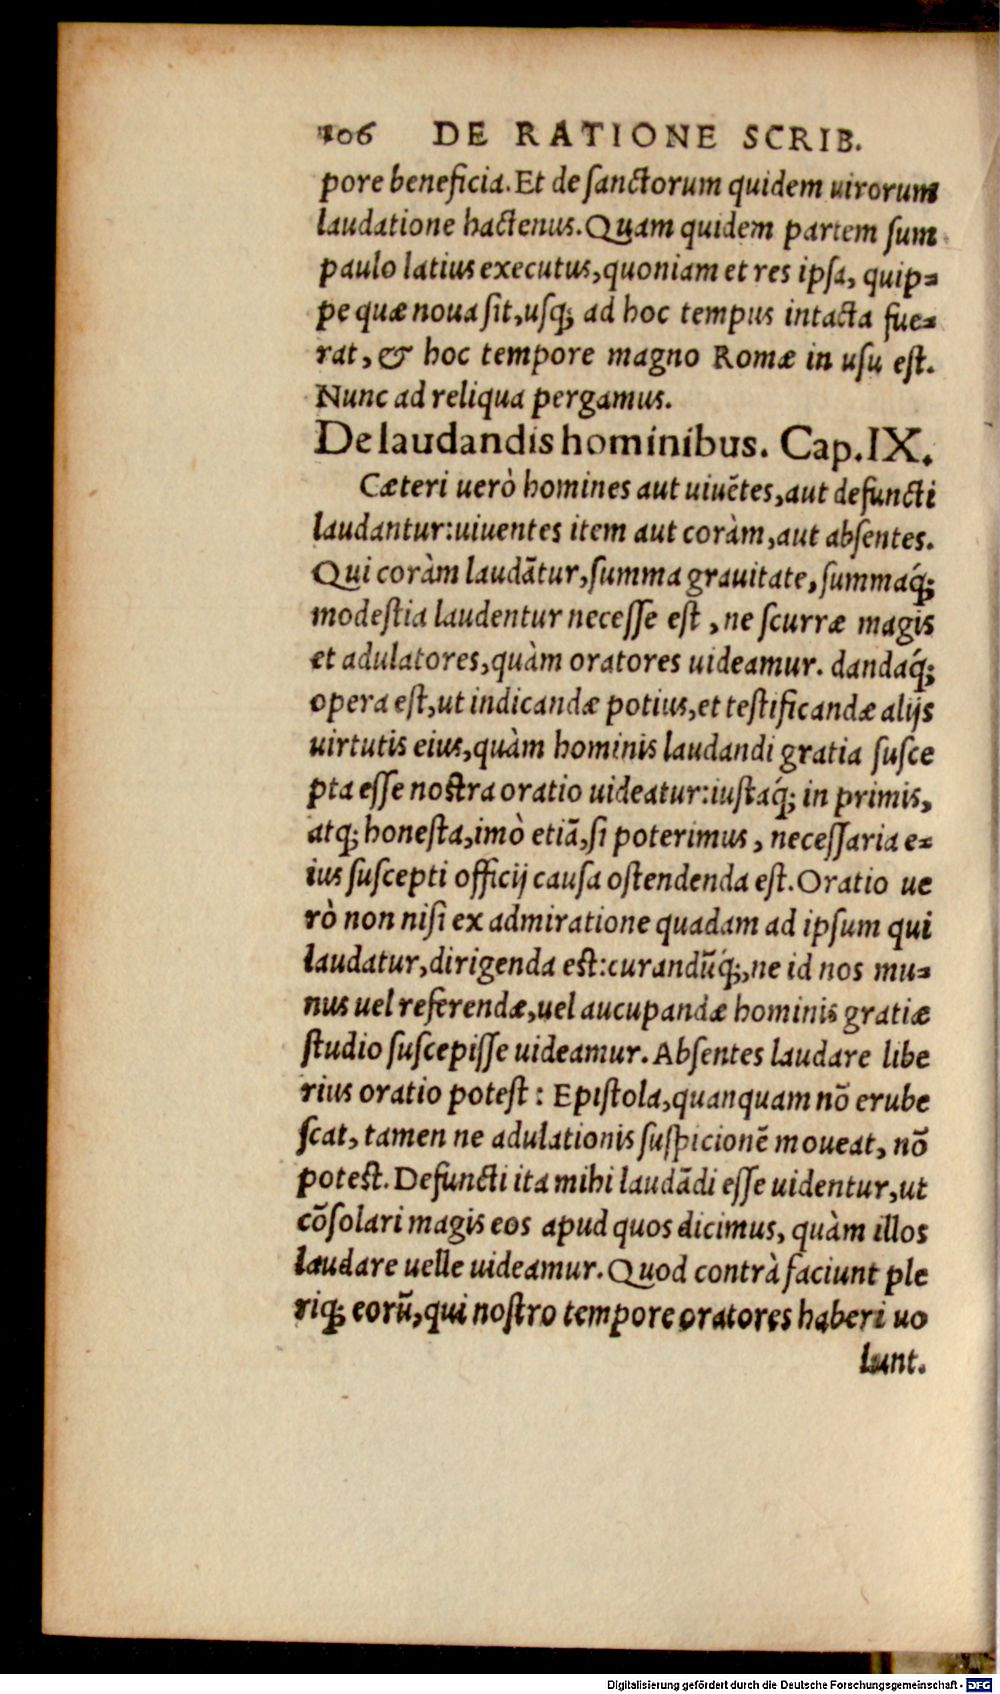 106 DE RATIONE SCRIB.
pore beneficia. Et de sanctorum quidem uirorum
laudatione hactenus. Quam quidem partem sum
paulo latius executus, quoniam et res ipsa, quip-
pe quæ noua sit, usq; ad hoc tempus intacta fue-
rat, & hoc tempore magno Romæ in usu est.
Nunc ad reliqua pergamus.
De laudandis hominibus. Cap. IX.
Cæteri uerò homines aut uiuētes, aut defuncti
laudantur: uiuentes item aut coràm, aut absentes.
Qui coràm laudātur, summa grauitate, summaq́;
modestia laudentur necesse est, ne scurræ magis
et adulatores, quàm oratores uideamur. dandaq́;
opera est, ut indicandæ potius, et testificandæ alijs
uirtutis eius, quàm hominis laudandi gratia susce
pta esse nostra oratio uideatur: iustaq́; in primis,
atq; honesta, imò etiā, si poterimus, necessaria e-
ius suscepti officij causa ostendenda est. Oratio ue
rò non nisi ex admiratione quadam ad ipsum qui
laudatur, dirigenda est: curandūq́;, ne id nos mu-
nus uel referendæ, uel aucupandæ hominis gratiæ
studio suscepisse uideamur. Absentes laudare libe
rius oratio potest: Epistola, quanquam nō erube
scat, tamen ne adulationis suspicionē moueat, nō
potest. Defuncti ita mihi laudādi esse uidentur, ut
cōsolari magis eos apud quos dicimus, quàm illos
laudare uelle uideamur. Quod contrà faciunt ple
riq; eorū, qui nostro tempore oratores haberi uo
lunt.
Digitalisierung gefördert durch die Deutsche Forschungsgemeinschaft - DFG